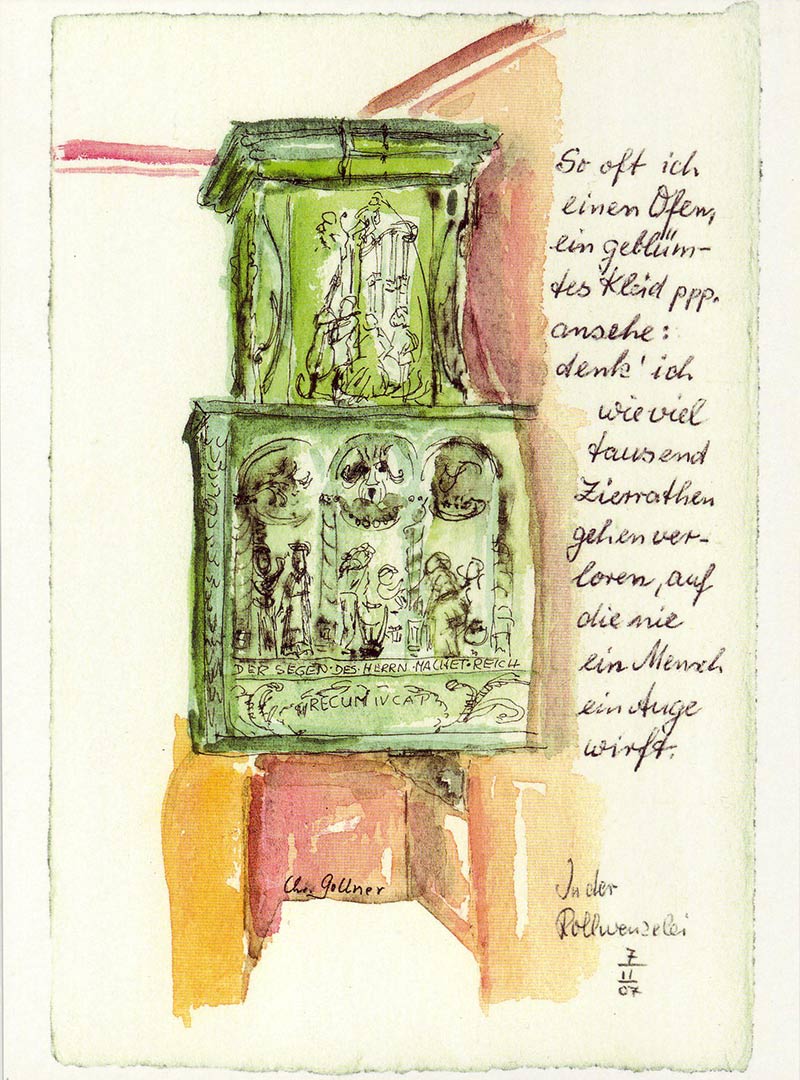 So oft ich
einen Ofen,
ein geblüm-
tes Kleid ppp.
ansehe:
denk' ich
wieviel
tausend
Zierrathen
gehen ver-
loren, auf
die nie
ein Mensch
ein Auge
wirft.
DER SEGEN·DES·HERRN·MACHET·REICH
RECUM IV CAP
Chr. Gollner
In der
Rollwenzelei
7
11
07